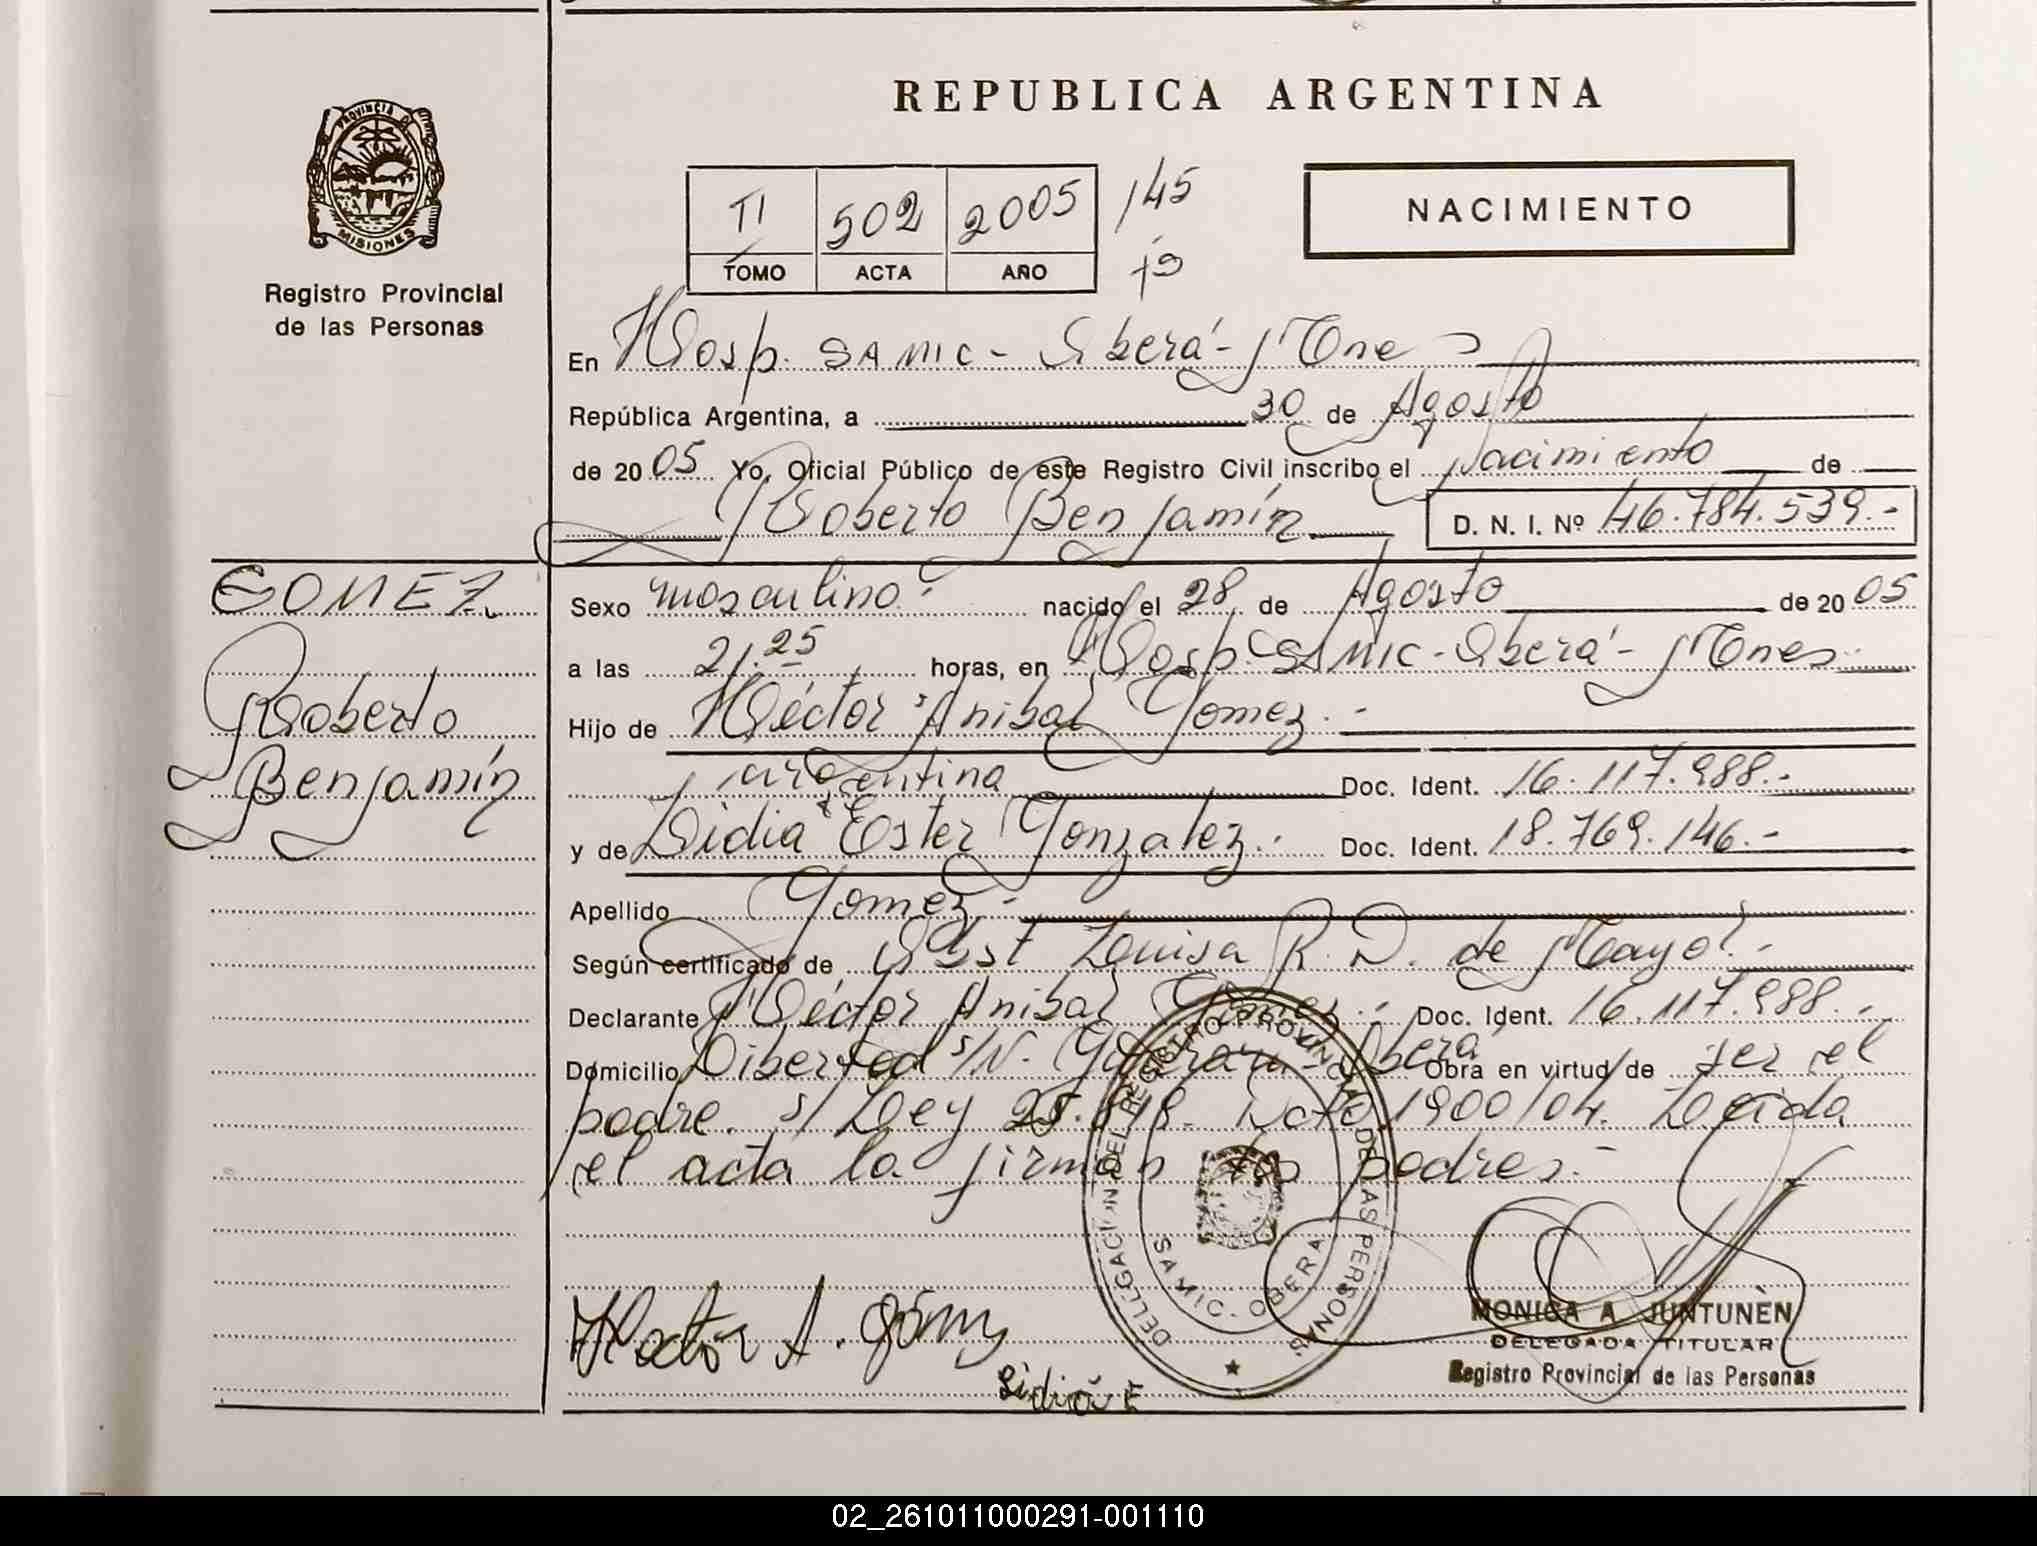 REPUBLICA ARGENTINA
PROVINCIA DE
MISIONES
Registro Provincial
de las Personas
TI 502 2005 145
TOMO ACTA AÑO
NACIMIENTO
En Hosp. SAMIC - Oberá - Mnes
República Argentina, a 30 de Agosto
de 2005 Yo, Oficial Público de este Registro Civil inscribo el Nacimiento de
Roberto Benjamín D. N. I. Nº 46.784.539.-
GOMEZ
Roberto
Benjamín
Sexo masculino nacido el 28 de Agosto de 2005
a las 21.25 horas, en Hosp. SAMIC - Oberá - Mnes.
Hijo de Héctor Anibal Gomez.-
argentina Doc. Ident. 16.117.988.-
y de Lidia Ester Gonzalez.- Doc. Ident. 18.769.146.-
Apellido Gomez.-
Según certificado de Obst Louisa R. D. de Mayol.-
Declarante Héctor Anibal Gomez.- Doc. Ident. 16.117.988.-
Domicilio Libertad s/N- Guaraní - Oberá Obra en virtud de ser el
padre. s/ Ley 25.818. Dcto. 1900/04. Leida
el acta la firman los padres.-
DELEGACION DEL REGISTRO PROVINCIAL DE LAS PERSONAS
SAMIC - OBERA
Hector A. Gómez
Lidia E
MONICA A JUNTUNEN
DELEGADA TITULAR
Registro Provincial de las Personas
02_261011000291-001110